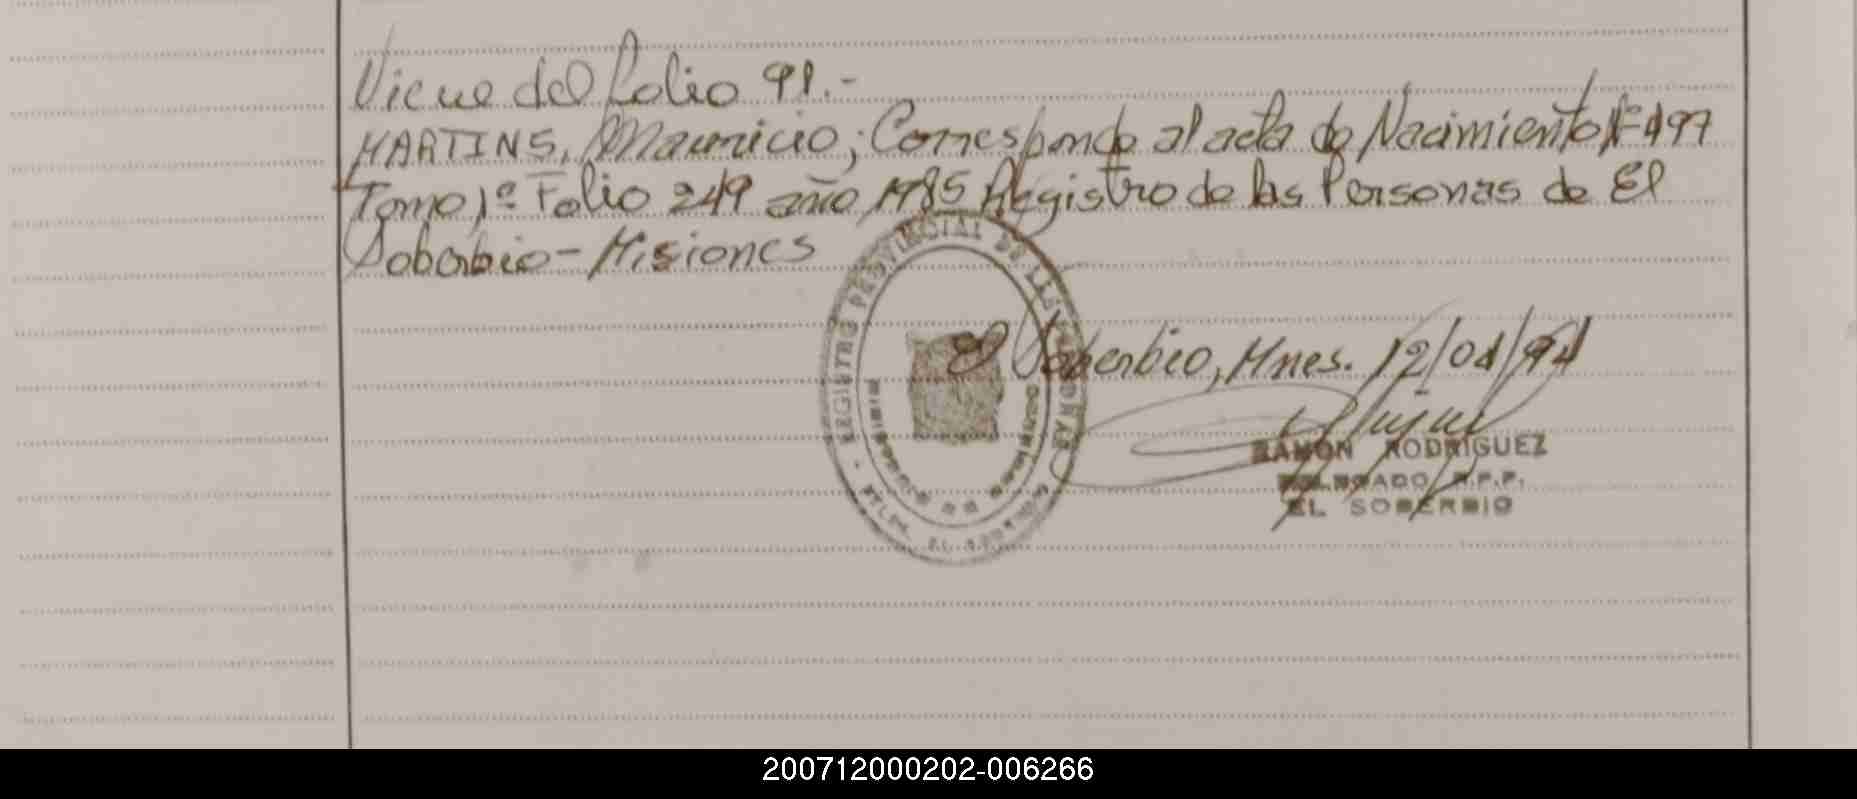 Viene del folio 91.-
MARTINS, Mauricio; Corresponde al acta de Nacimiento Nº 497
Tomo 1º Folio 249 año 1985 Registro de las Personas de El
Soberbio - Misiones
REGISTRO PROVINCIAL DE LAS PERSONAS
El Soberbio, Mnes. 12/04/94
RAMON RODRIGUEZ
DELEGADO R.P.P.
EL SOBERBIO
200712000202-006266